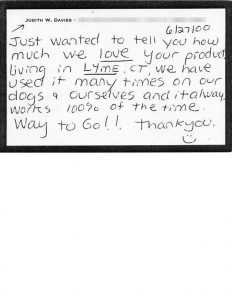 JUDITH W. DAVIES •
6/27/00
Just wanted to tell you how
much we love your product
living in LYME, CT, we have
used it many times on our
dogs & ourselves and it alway
works 100% of the time.
Way to Go!! Thankyou.